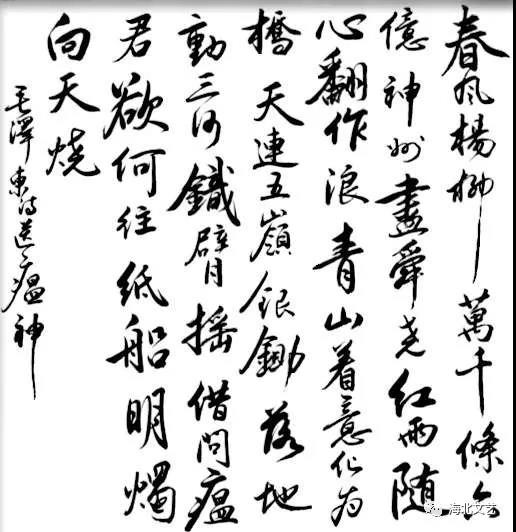 春风楊柳萬千條六
億神州盡舜尧红雨随
心翻作浪青山着意化为
橋天連五嶺银鋤落地
動三河鐵臂摇借问瘟
君欲何往纸船明燭
向天烧
毛澤東诗送瘟神
海北文艺